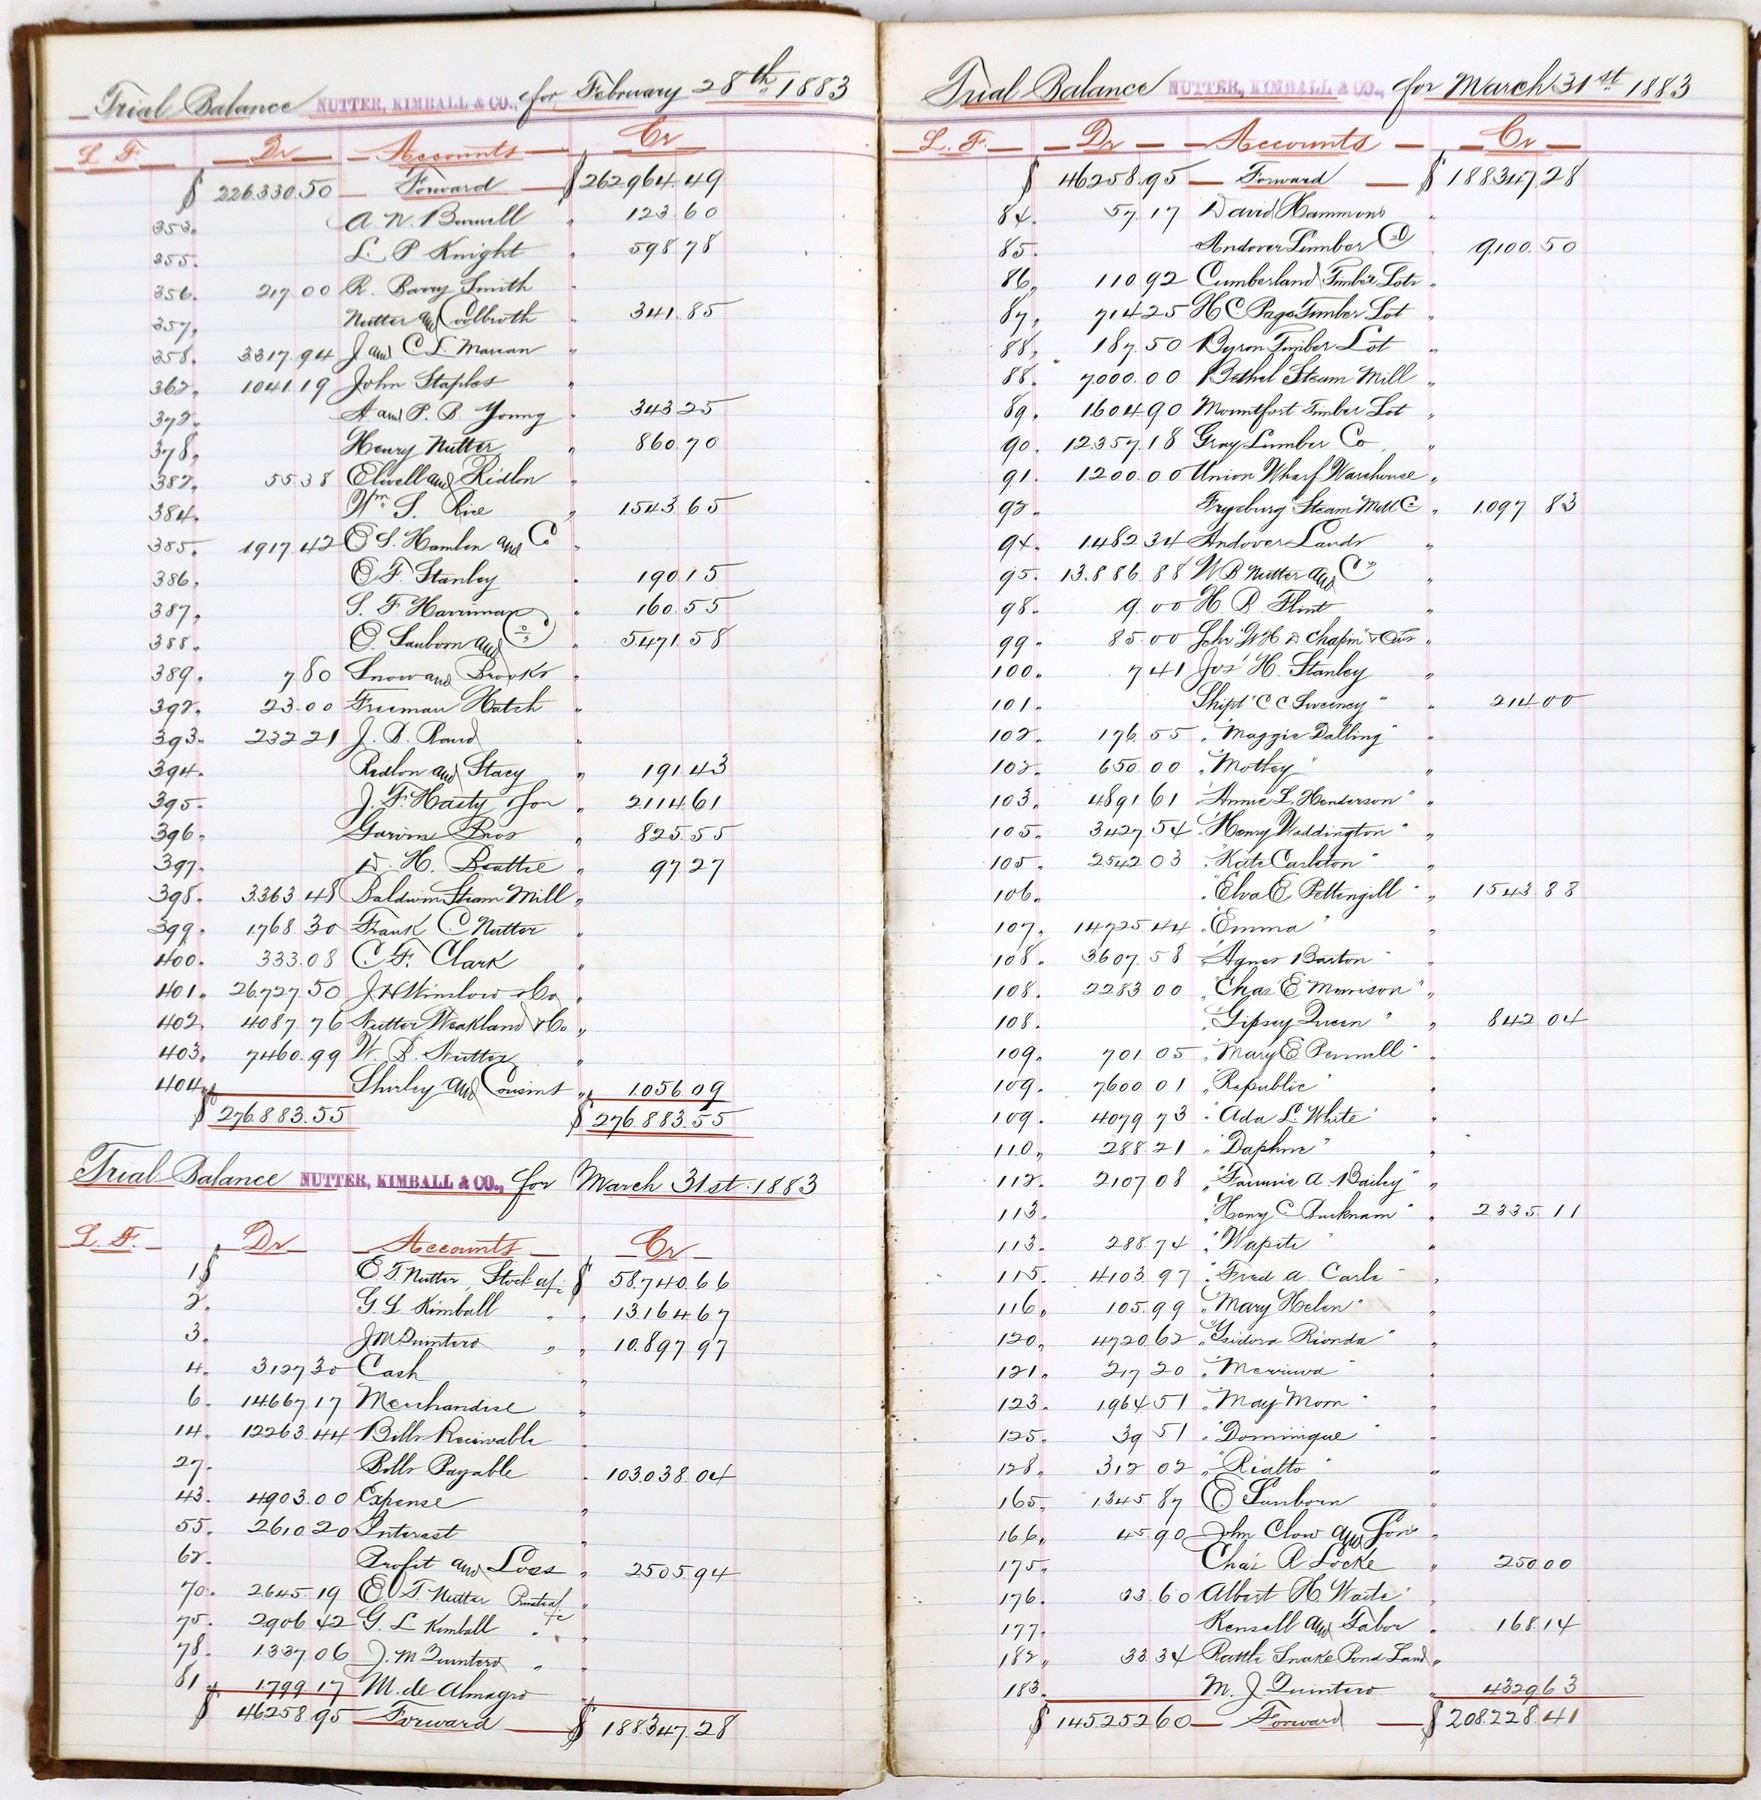 Trial Balance NUTTER, KIMBALL & CO., for February 28th 1883
L. F. Dr Accounts Cr
$ 226.330.50 Forward $ 262.964.49
353. A. N. Burnell " 123.60
355. L. P. Knight " 598.78
356. 217.00 R. Barry Smith "
357. Nutter and Coolbroth 341.85
358. 3317.94 J and C L. "
362. 1041.19 John Staples "
372. A and P. B Young " 343.25
378. Henry Nutter " 860.70
382. 55.38 Elwell and Ridlon "
384. Wm S. Rice " 1543.65
385. 1917.42 O S. Hamlen and Co "
386. O F. Stanley " 190.15
387. S. F. Harriman " 160.55
388. O. Sanborn and Co " 5471.58
389. 7.80 Snow and Brooks "
392. 23.00 Freeman Hatch "
393. 232.21 J. B. Rand "
394. Redlon and Stacy " 191.43
395. J. F. Hasty & Son " 2114.61
396. Garvin Bros " 825.55
397. D. H. Beattie " 97.27
398. 3363.48 Baldwin Steam Mill "
399. 1768.30 Frank C Nutter "
400. 333.08 C. F. Clark "
401. 26727.50 J H Winslow & Co "
402. 4087.76 Nutter Weakland & Co "
403. 7460.99 W. B. Nutter "
404. Shirley and Cousins " 1056.09
$ 276.883.55 $ 276.883.55
Trial Balance NUTTER, KIMBALL & CO., for March 31st 1883
L. F. Dr Accounts Cr
1 $ E T Nutter Stock a/c $ 58.740.66
2. G. L. Kimball " " 13164.67
3. J M Quintero " " 10.897.97
4. 3127.30 Cash "
6. 14667.17 Merchandise "
14. 12263.44 Bills Receivable "
27. Bills Payable " 103.038.04
43. 4903.00 Expense "
55. 2610.20 Interest "
62. Profit and Loss " 2505.94
70. 2645.19 E T Nutter Private a/c "
75. 2906.42 G. L Kimball " "
78. 1337.06 J. M Quintero " "
81 1799.17 M. de Almagro "
$ 46258.95 Forward $ 188.347.28
Trial Balance NUTTER, KIMBALL & CO., for March 31st 1883
L. F. Dr Accounts Cr
$ 46258.95 Forward $ 188347.28
84. 57.17 David Hammons "
85. Andover Lumber Co " 9100.50
86. 110.92 Cumberland Timber Lots "
87. 714.25 H C Page Timber Lot "
88. 187.50 Byron Timber Lot "
88. 7000.00 Bethel Steam Mill "
89. 1604.90 Mountfort Timber Lot "
90. 12357.18 Gray Lumber Co "
91. 1200.00 Union Wharf Warehouse "
92. Fryeburg Steam Mill Co " 1097.83
94. 1482.34 Andover Lands "
95. 13.886.88 W B Nutter and Co "
98. 9.00 H. B. Flint "
99. 85.00 Schr "W H D Chapin" & Ours "
100. 7.41 Jos' H. Stanley "
101. Shipt "C C Sweeney" " 214.00
102. 176.55 " "Maggie Dalling" "
102. 650.00 " "Motley" "
103. 4891.61 " "Annie L. Henderson" "
105. 3427.54 " "Henry Waddington" "
105. 2542.03 " "Kate Carleton" "
106. " "Elva E. Pettengill" " 1543.88
107. 14725.44 " "Emma" "
108. 3607.58 " "Agnes Barton" "
108. 2283.00 " "Chas E Morrison" "
108. " "Gipsey Queen" " 842.04
109. 701.05 " "Mary E Pennell" "
109. 7600.01 " "Republic" "
109. 4079.73 " "Ada L. White" "
110. 288.21 " "Daphne" "
112. 2107.08 " "Fannie A. Bailey" "
113. " "Henry C Bucknam" " 2335.11
113. 288.74 " "Wapiti" "
115. 4103.97 " "Fred A. Carle" "
116. 105.99 " "Mary Helen" "
120. 4720.62 " "Ysidora Rionda" "
121. 217.20 " "Merriwa" "
123. 1964.51 " "May Morn" "
125. 39.51 " "Dominique" "
128. 312.02 " "Rialto" "
165. 1345.87 E. Sanborn "
166. 45.90 John Clow and Son "
175. Chas R Locke " 250.00
176. 33.60 Albert H. Waite "
177. Kensell and Tabor " 168.14
182. 33.34 Rattle Snake Pond Land "
183. M. J Quintero " 4329.63
$ 145252.60 Forward $ 208.228.41